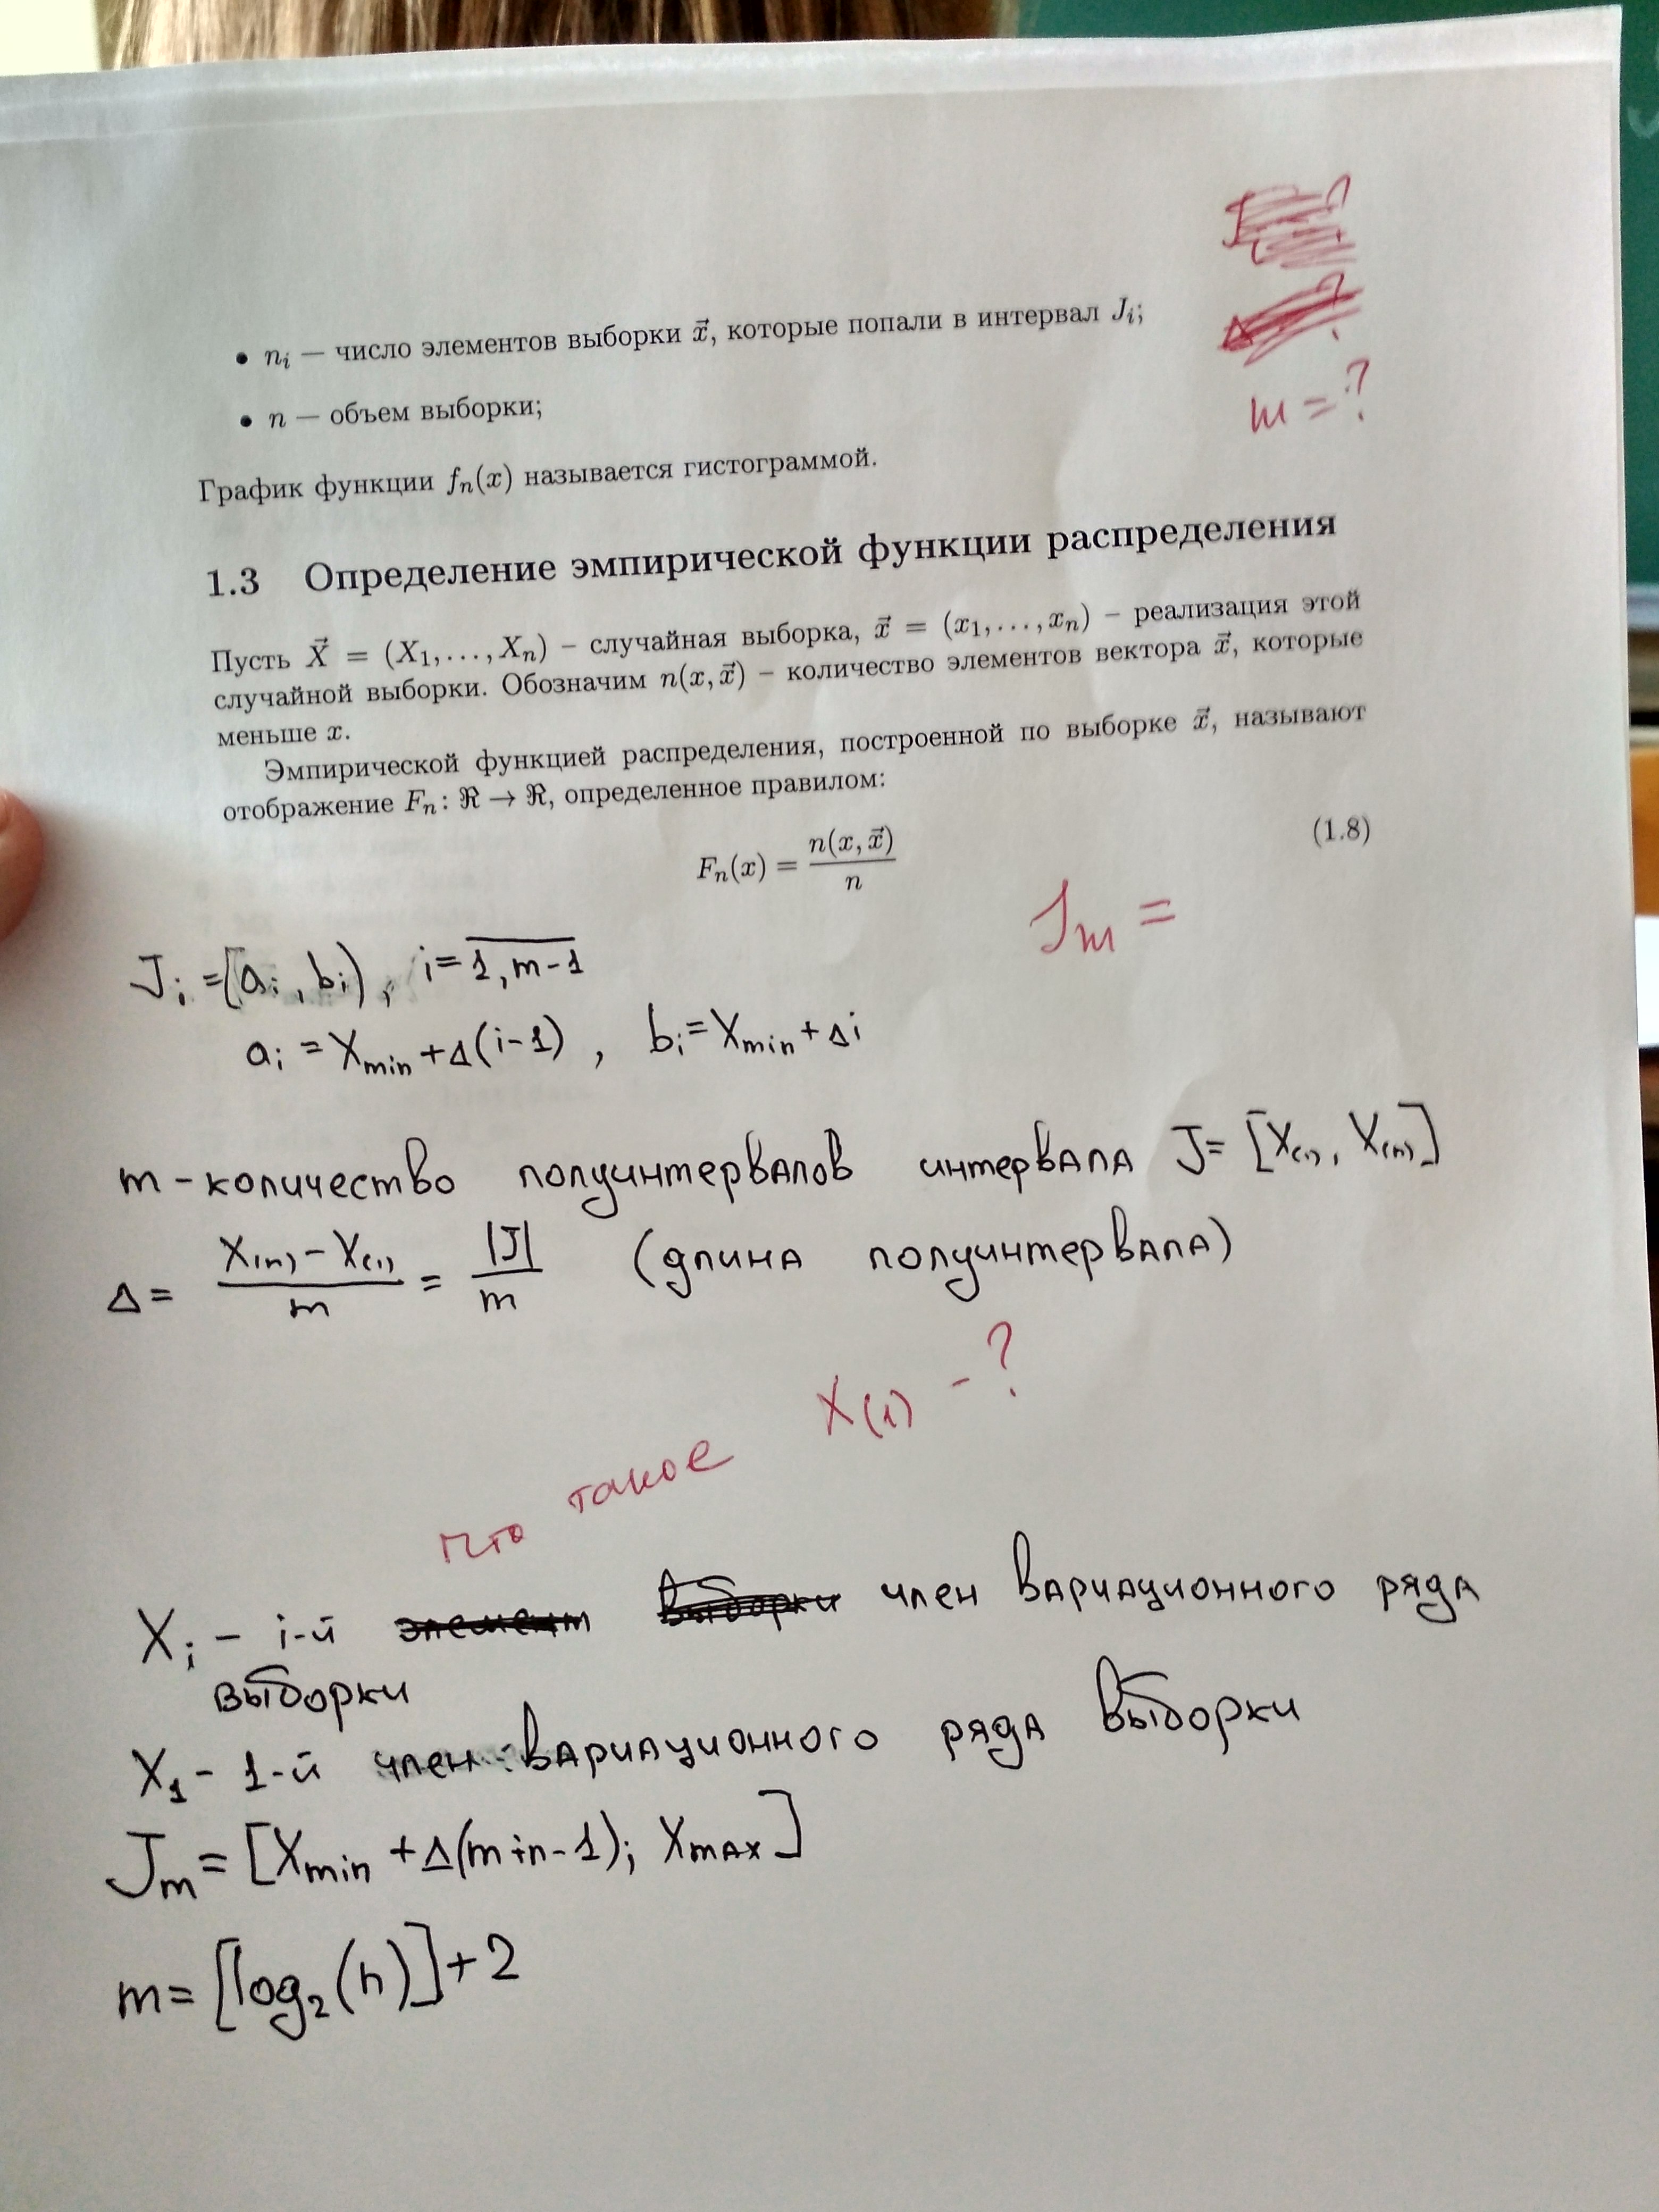 • n_i — число элементов выборки x⃗, которые попали в интервал J_i;
• n — объем выборки;
m = ?
График функции f_n(x) называется гистограммой.
1.3 Определение эмпирической функции распределения
Пусть X⃗ = (X_1, …, X_n) – случайная выборка, x⃗ = (x_1, …, x_n) – реализация этой
случайной выборки. Обозначим n(x, x⃗) – количество элементов вектора x⃗, которые
меньше x.
Эмпирической функцией распределения, построенной по выборке x⃗, называют
отображение F_n: ℜ → ℜ, определенное правилом:
F_n(x) = n(x, x⃗) / n (1.8)
J_m =
J_i = [a_i, b_i), i = \overline{1, m-1}
a_i = X_min + Δ(i-1), b_i = X_min + Δi
m - количество полуинтервалов интервала J = [X_(1), X_(n)]
Δ = (X_(n) - X_(1)) / m = |J| / m (длина полуинтервала)
что такое X_(1) - ?
X_i - i-й элемент выборки член вариационного ряда
выборки
X_1 - 1-й член вариационного ряда выборки
J_m = [X_min + Δ(m+n-1); X_max]
m = [log_2(n)] + 2